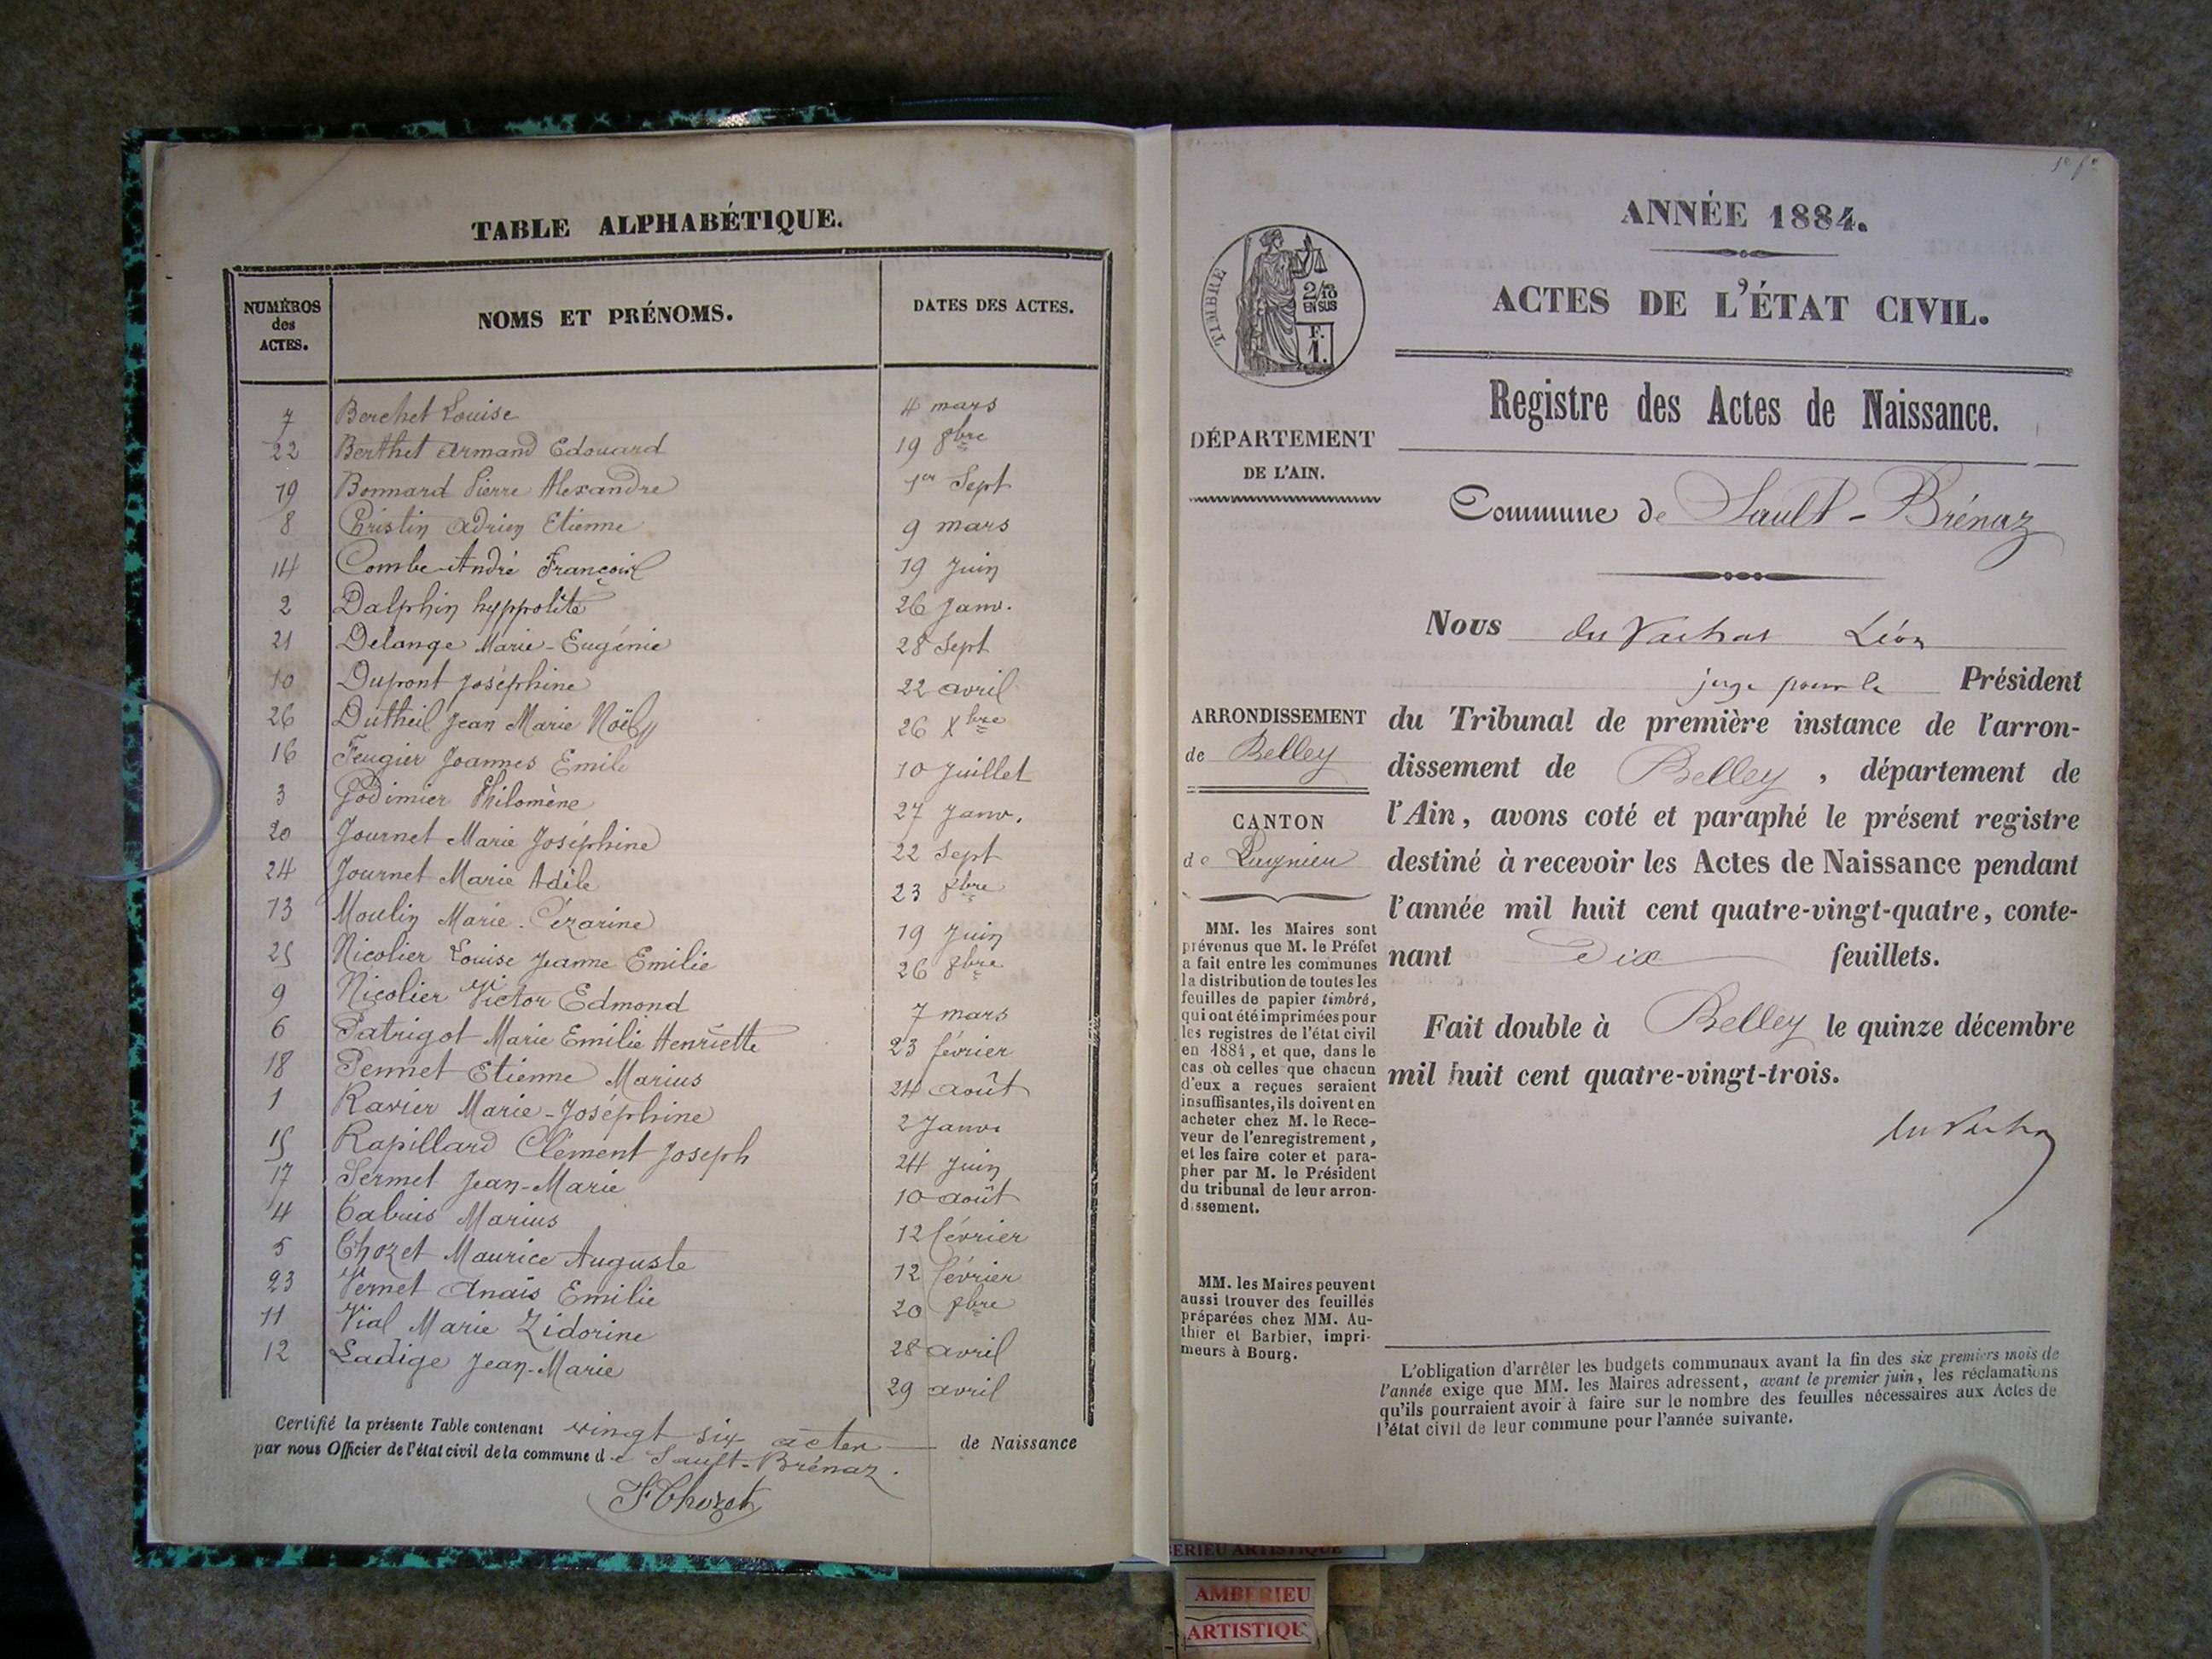 TABLE ALPHABÉTIQUE.
NUMÉROS des ACTES. NOMS ET PRÉNOMS. DATES DES ACTES.
7 Berchet Louise 4 mars
22 Berthet Armand Edouard 19 8bre
19 Bonnard Pierre Alexandre 1er Sept
8 Christin Adrien Etienne 9 mars
14 Combe André François 19 Juin
2 Dalphin hyppolite 26 Janv.
21 Delange Marie-Eugénie 28 Sept
10 Dupont Joséphine 22 avril
26 Dutheil Jean Marie Noël 26 Xbre
16 Feugier Joannes Emile 10 Juillet
3 Godimier Philomène 27 Janv.
20 Journet Marie Joséphine 22 Sept
24 Journet Marie Adèle 23 8bre
13 Moulin Marie-Cézarine 19 Juin
25 Nicolier Louise Jeanne Emilie 26 8bre
9 Nicolier Victor Edmond 7 mars
6 Patrigot Marie Emilie Henriette 23 février
18 Pennet Etienne Marius 24 août
1 Ravier Marie-Joséphine 2 Janv.
15 Rapillard Clément Joseph 24 Juin
17 Sermet Jean-Marie 10 août
4 Cabuis Marius 12 février
5 Chozet Maurice Auguste 12 février
23 Vernet Anaïs Emilie 20 8bre
11 Vial Marie Zidorine 28 avril
12 Ladige Jean-Marie 29 avril
Certifié la présente Table contenant vingt six actes de Naissance
par nous Officier de l'état civil de la commune de Sault-Brénaz.
FChozet
1er f
ANNÉE 1884.
ACTES DE L'ÉTAT CIVIL.
TIMBRE
2/10
EN SUS
F.
1.
Registre des Actes de Naissance.
DÉPARTEMENT
DE L'AIN.
Commune de Sault-Brénaz
Nous du Vachat Léon
juge pour le Président
du Tribunal de première instance de l'arron-
dissement de Belley, département de
l'Ain, avons coté et paraphé le présent registre
destiné à recevoir les Actes de Naissance pendant
l'année mil huit cent quatre-vingt-quatre, conte-
nant Dix feuillets.
Fait double à Belley le quinze décembre
mil huit cent quatre-vingt-trois.
du Vachat
ARRONDISSEMENT
de Belley
CANTON
de Lagnieu
MM. les Maires sont
prévenus que M. le Préfet
a fait entre les communes
la distribution de toutes les
feuilles de papier timbré,
qui ont été imprimées pour
les registres de l'état civil
en 1884, et que, dans le
cas où celles que chacun
d'eux a reçues seraient
insuffisantes, ils doivent en
acheter chez M. le Rece-
veur de l'enregistrement,
et les faire coter et para-
pher par M. le Président
du tribunal de leur arron-
dissement.
MM. les Maires peuvent
aussi trouver des feuilles
préparées chez MM. Au-
thier et Barbier, impri-
meurs à Bourg.
L'obligation d'arrêter les budgets communaux avant la fin des six premiers mois de
l'année exige que MM. les Maires adressent, avant le premier juin, les réclamations
qu'ils pourraient avoir à faire sur le nombre des feuilles nécessaires aux Actes de
l'état civil de leur commune pour l'année suivante.
BERIEU ARTISTIQUE
AMBERIEU
ARTISTIQU